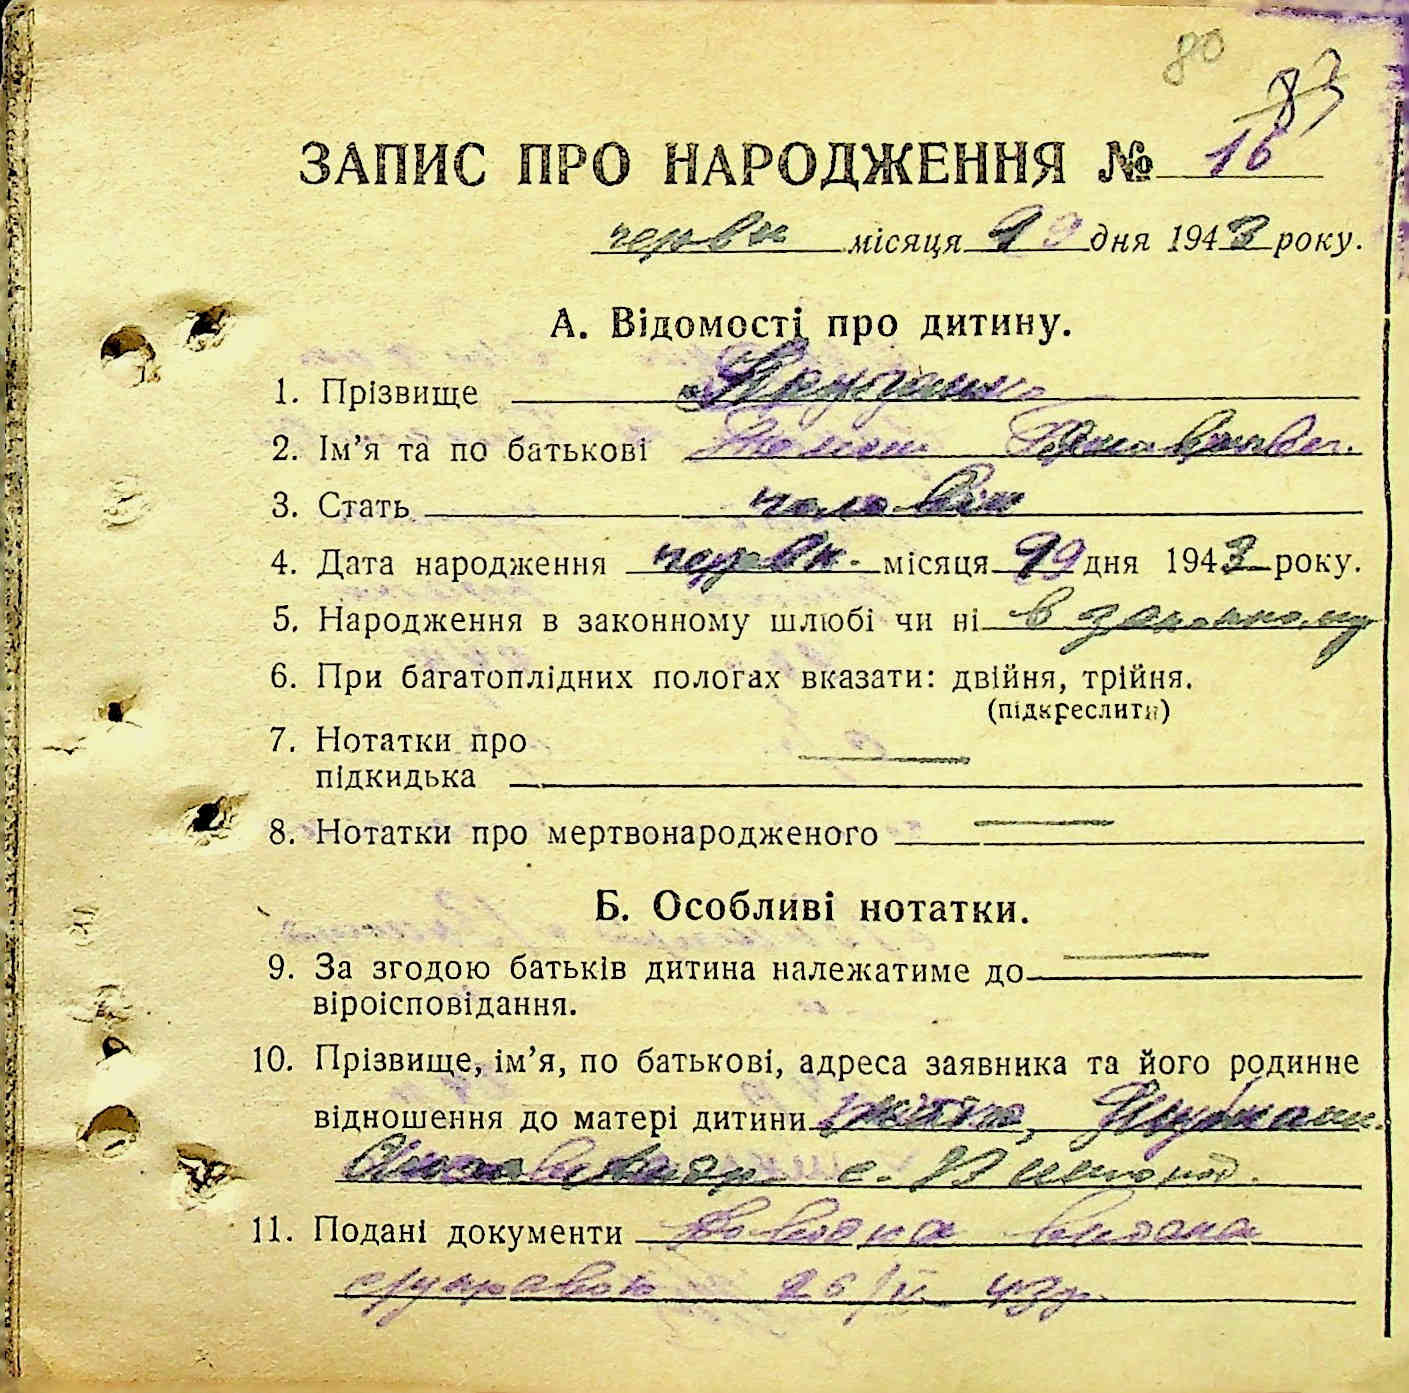 80
83
ЗАПИС ПРО НАРОДЖЕННЯ № 16
червн місяця 19 дня 1943 року.
А. Відомості про дитину.
1. Прізвище
2. Ім’я та по батькові
3. Стать чоловік
4. Дата народження червн. місяця 19 дня 1943 року.
5. Народження в законному шлюбі чи ні в законному
6. При багатоплідних пологах вказати: двійня, трійня.
(підкреслити)
7. Нотатки про
підкидька
8. Нотатки про мертвонародженого
Б. Особливі нотатки.
9. За згодою батьків дитина належатиме до
віроісповідання.
10. Прізвище, ім’я, по батькові, адреса заявника та його родинне
відношення до матері дитини
с.
11. Подані документи Довідка видана
с/управою 26/VI 43р.